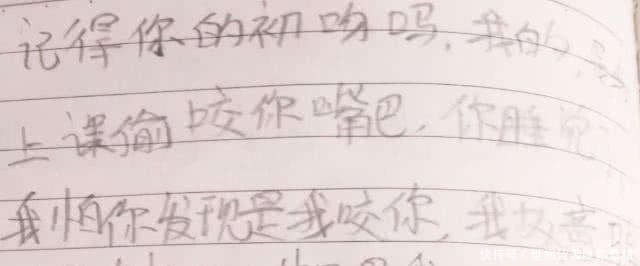 记得你的初吻吗，我的，是
上课偷咬你嘴巴，你睡觉
我怕你发现是我咬你，我故意
快传号／